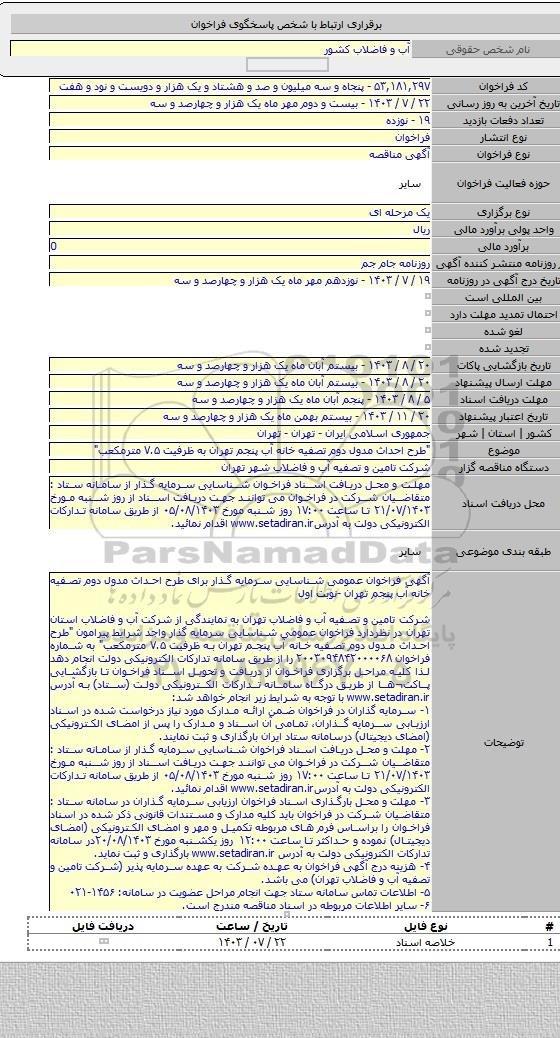 برقراری ارتباط با شخص پاسخگوی فراخوان
نام شخص حقوقی آب و فاضلاب کشور
کد فراخوان ۵۳,۱۸۱,۲۹۷ - پنجاه و سه میلیون و صد و هشتاد و یک هزار و دویست و نود و هفت
تاریخ آخرین به روز رسانی ۲۲ / ۷ / ۱۴۰۳ - بیست و دوم مهر ماه یک هزار و چهارصد و سه
تعداد دفعات بازدید ۱۹ - نوزده
نوع انتشار فراخوان
نوع فراخوان آگهی مناقصه
حوزه فعالیت فراخوان سایر
نوع برگزاری یک مرحله ای
واحد پولی برآورد مالی ریال
برآورد مالی 0
روزنامه منتشر کننده آگهی روزنامه جام جم
تاریخ درج آگهی در روزنامه ۱۹ / ۷ / ۱۴۰۳ - نوزدهم مهر ماه یک هزار و چهارصد و سه
بین المللی است
احتمال تمدید مهلت دارد
لغو شده
تجدید شده
تاریخ بازگشایی پاکات ۲۰ / ۸ / ۱۴۰۳ - بیستم آبان ماه یک هزار و چهارصد و سه
مهلت ارسال پیشنهاد ۲۰ / ۸ / ۱۴۰۳ - بیستم آبان ماه یک هزار و چهارصد و سه
مهلت دریافت اسناد ۵ / ۸ / ۱۴۰۳ - پنجم آبان ماه یک هزار و چهارصد و سه
تاریخ اعتبار پیشنهاد ۲۰ / ۱۱ / ۱۴۰۳ - بیستم بهمن ماه یک هزار و چهارصد و سه
کشور | استان | شهر جمهوری اسلامی ایران - تهران - تهران
موضوع "طرح احداث مدول دوم تصفیه خانه آب پنجم تهران به ظرفیت ۷.۵ مترمکعب"
دستگاه مناقصه گزار شرکت تامین و تصفیه آب و فاضلاب شهر تهران
محل دریافت اسناد
مهلت و محل دریافت اسناد فراخوان شناسایی سرمایه گذار از سامانه ستاد :
متقاضیان شرکت در فراخوان می توانند جهت دریافت اسناد از روز شنبه مورخ
۲۱/۰۷/۱۴۰۳ تا ساعت ۱۷:۰۰ روز شنبه مورخ ۰۵/۰۸/۱۴۰۳ از طریق سامانه تدارکات
الکترونیکی دولت به آدرس www.setadiran.ir اقدام نمائید.
طبقه بندی موضوعی سایر
ParsNamadData
توضیحات
آگهی فراخوان عمومی شناسایی سرمایه گذار برای طرح احداث مدول دوم تصفیه
خانه آب پنجم تهران -نوبت اول
شرکت تامین و تصفیه آب و فاضلاب تهران به نمایندگی از شرکت آب و فاضلاب استان
تهران در نظردارد فراخوان عمومی شناسایی سرمایه گذار واجد شرایط پیرامون "طرح
احداث مدول دوم تصفیه خانه آب پنجم تهران به ظرفیت ۷.۵ مترمکعب" به شماره
فراخوان ۲۰۰۳۰۹۴۸۴۲۰۰۰۰۶۸ را از طریق سامانه تدارکات الکترونیکی دولت انجام دهد
لذا کلیه مراحل برگزاری فراخوان از دریافت و تحویل اسناد فراخوان تا بازگشایی
پاکت ها از طریق درگاه سامانه تدارکات الکترونیکی دولت (ستاد) به آدرس
www.setadiran.ir با توجه به شرایط زیر انجام خواهد شد:
۱- سرمایه گذاران در فراخوان ضمن ارائه مدارک مورد نیاز درخواست شده در اسناد
ارزیابی سرمایه گذاران، تمامی آن اسناد و مدارک را پس از امضای الکترونیکی
(امضای دیجیتال) درسامانه ستاد ایران بارگذاری و ثبت نمایند.
۲- مهلت و محل دریافت اسناد فراخوان شناسایی سرمایه گذار از سامانه ستاد :
متقاضیان شرکت در فراخوان می توانند جهت دریافت اسناد از روز شنبه مورخ
۲۱/۰۷/۱۴۰۳ تا ساعت ۱۷:۰۰ روز شنبه مورخ ۰۵/۰۸/۱۴۰۳ از طریق سامانه تدارکات
الکترونیکی دولت به آدرس www.setadiran.ir اقدام نمائید.
۳- مهلت و محل بارگذاری اسناد فراخوان ارزیابی سرمایه گذاران در سامانه ستاد :
متقاضیان شرکت در فراخوان باید کلیه مدارک و مستندات قانونی ذکر شده در اسناد
فراخوان را براساس فرم های مربوطه تکمیل و مهر و امضای الکترونیکی (امضای
دیجیتال) نموده و حداکثر تا ساعت ۱۲:۰۰ روز یکشنبه مورخ ۲۰/۰۸/۱۴۰۳در سامانه
تدارکات الکترونیکی دولت به آدرس www.setadiran.ir بارگذاری و ثبت نماید.
۴- هزینه درج آگهی فراخوان به عهده شرکت به عهده سرمایه پذیر (شرکت تامین و
تصفیه آب و فاضلاب تهران) می باشد.
۵- اطلاعات تماس سامانه ستاد جهت انجام مراحل عضویت در سامانه: ۱۴۵۶-۰۲۱
۶- سایر اطلاعات مربوطه در اسناد مناقصه مندرج است.
# نوع فایل تاریخ / ساعت دریافت فایل
1 خلاصه اسناد ۲۲ / ۰۷ / ۱۴۰۳